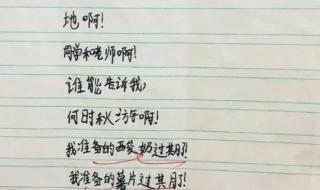 地啊！
同学和老师啊！
谁能告诉我，
何时秋游啊！
我准备的酸奶过期了！
我准备的薯片过期了！